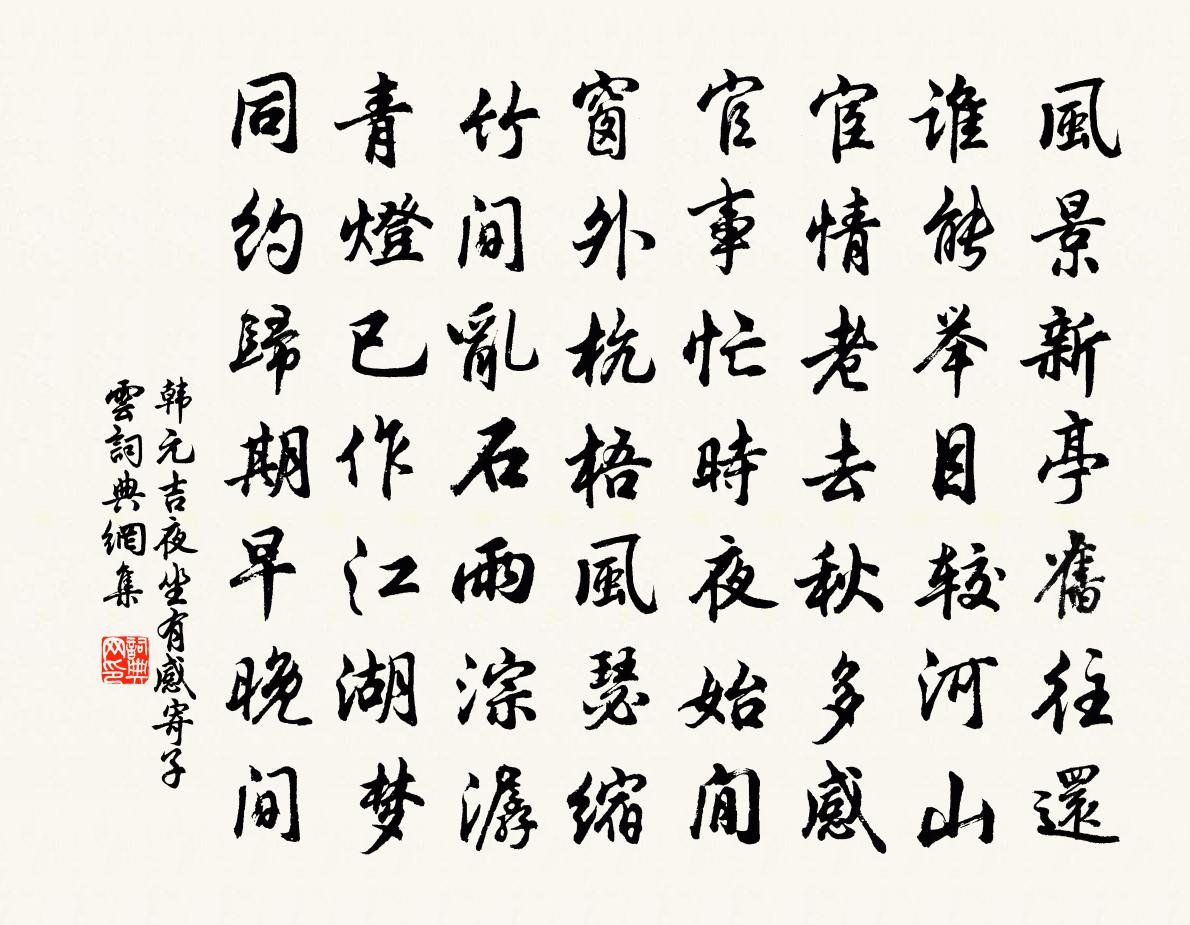 風景新亭舊往還
谁能举目较河山
宦情老去秋多感
官事忙時夜始閒
窗外杭梧風瑟缩
竹間亂石雨淙潺
青燈已作江湖梦
同约歸期早晚間
韩元吉夜坐有感寄子
雲詞典網集
詞典网印